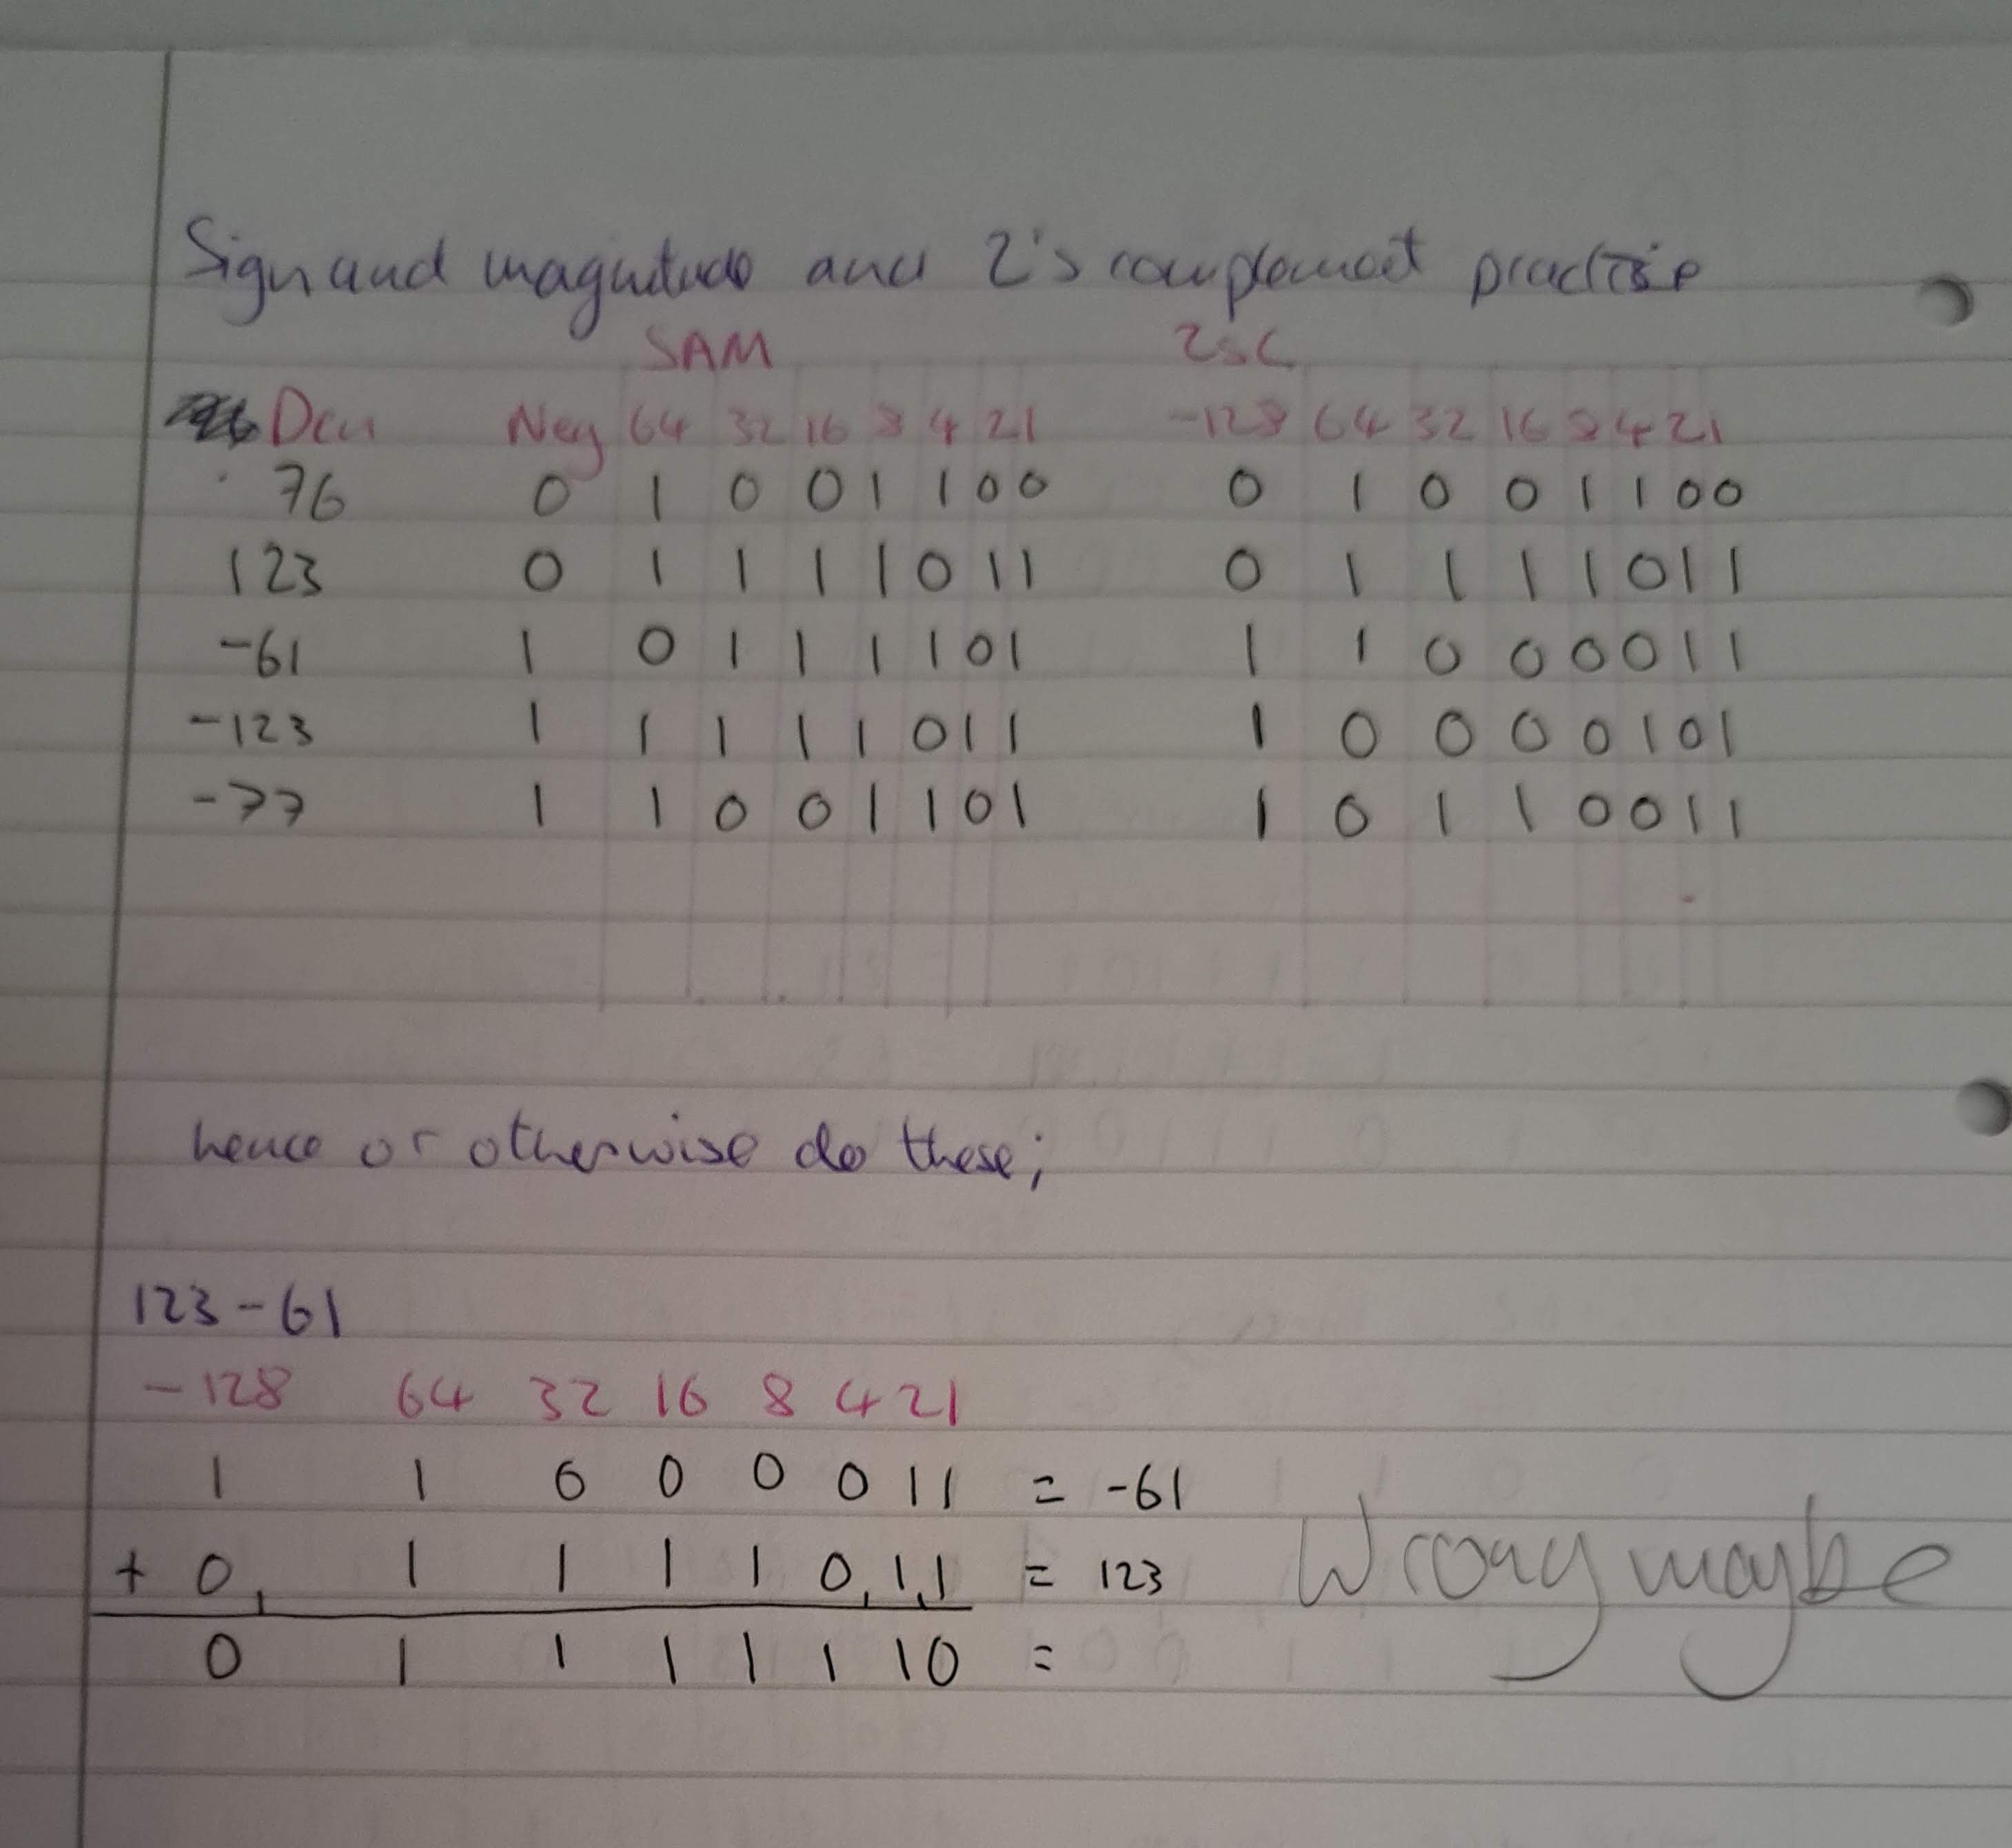 Sign and magnitude and 2's complement practise
SAM 2sC
Den Neg 64 32 16 8 4 2 1 -128 64 32 16 8 4 2 1
76 0 1 0 0 1 1 0 0 0 1 0 0 1 1 0 0
123 0 1 1 1 1 0 1 1 0 1 1 1 1 0 1 1
-61 1 0 1 1 1 1 0 1 1 1 0 0 0 0 1 1
-123 1 1 1 1 1 0 1 1 1 0 0 0 0 1 0 1
-77 1 1 0 0 1 1 0 1 1 0 1 1 0 0 1 1
hence or otherwise do these;
123-61
-128 64 32 16 8 4 2 1
1 1 0 0 0 0 1 1 = -61
+ 0 1 1 1 1 0 1 1 = 123 Wrong maybe
0 1 1 1 1 1 1 0 =